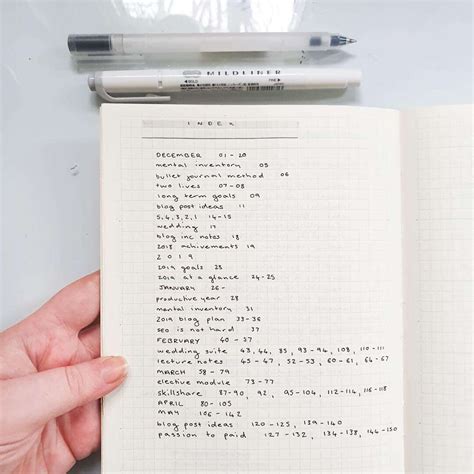 MILDLINER
BOLD FINE
INDEX
DECEMBER 01-20
mental inventory 05
bullet journal method 06
two lives 07-08
long term goals 09
blog post ideas 11
5,4,3,2,1 14-15
wedding 17
blog inc notes 18
2018 achivements 19
2019
2019 goals 23
2019 at a glance 24-25
JANUARY 26-
productive year 28
mental inventory 31
2019 blog plan 33-36
seo is not hard 37
FEBRUARY 40-57
wedding suite 43, 44, 85, 93-94, 108, 110-111
lecture notes 45-47, 52-53, 60-61, 66-67
MARCH 58-79
elective module 73-77
skillshare 87-90, 92, 95-104, 112-114, 116-118
APRIL 80-105
MAY 106-142
blog post ideas 120-125, 139-140
passion to paid 127-132, 134-138, 144-150